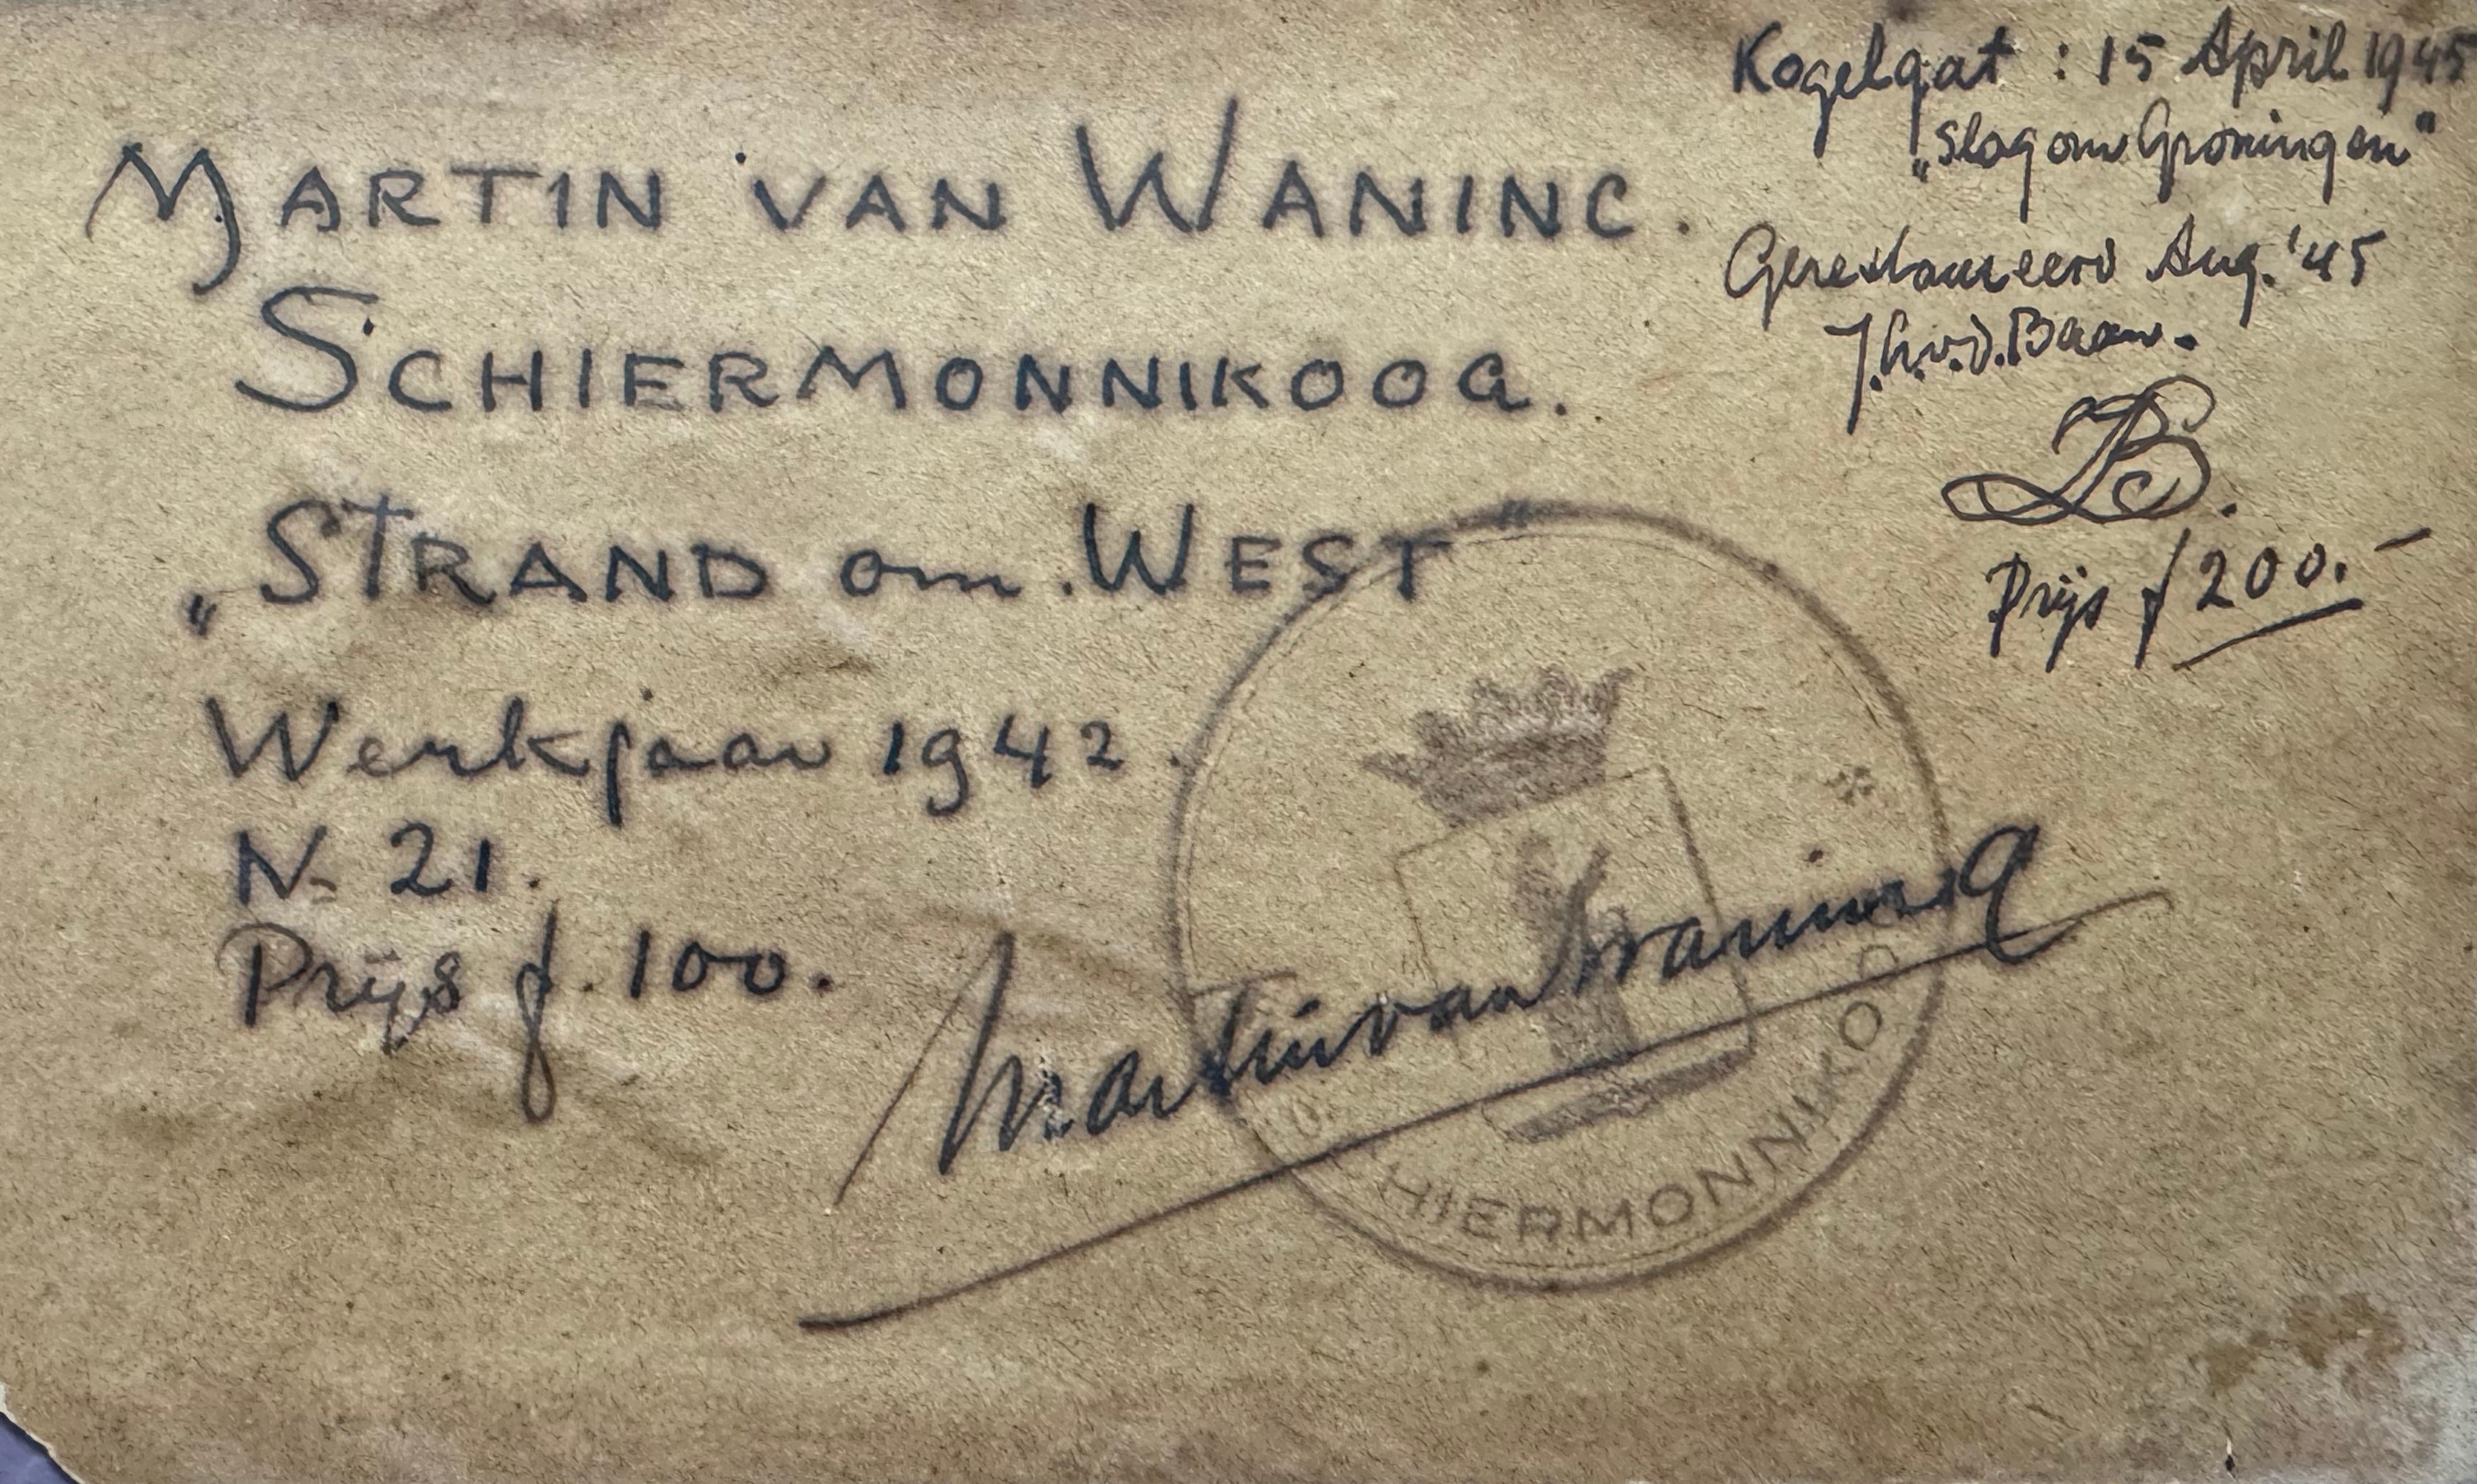 MARTIN VAN WANING.
SCHIERMONNIKOOG.
„STRAND om. WEST"
Werkjaar 1942.
N. 21.
Prijs f. 100.
Martin van Waning
HIERMONNIKOO
Kogelgat : 15 April 1945
„Slag om Groningen"
Gerestaureerd Aug. '45
J.h.v.d.Baan.
B.
Prijs f 200.-